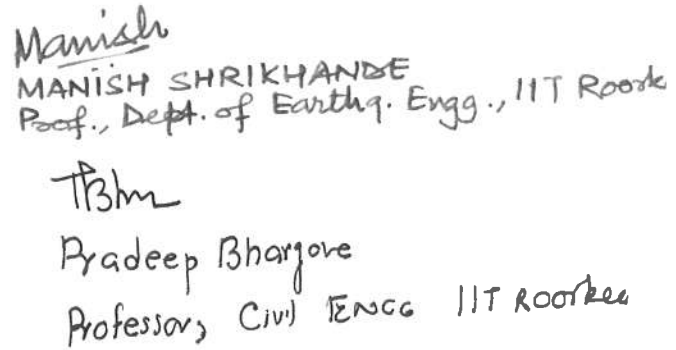 Manish
MANISH SHRIKHANDE
Prof., Dept. of Earthq. Engg., IIT Roork
Pradeep Bhargove
Professor, Civil ENGG IIT ROORKee